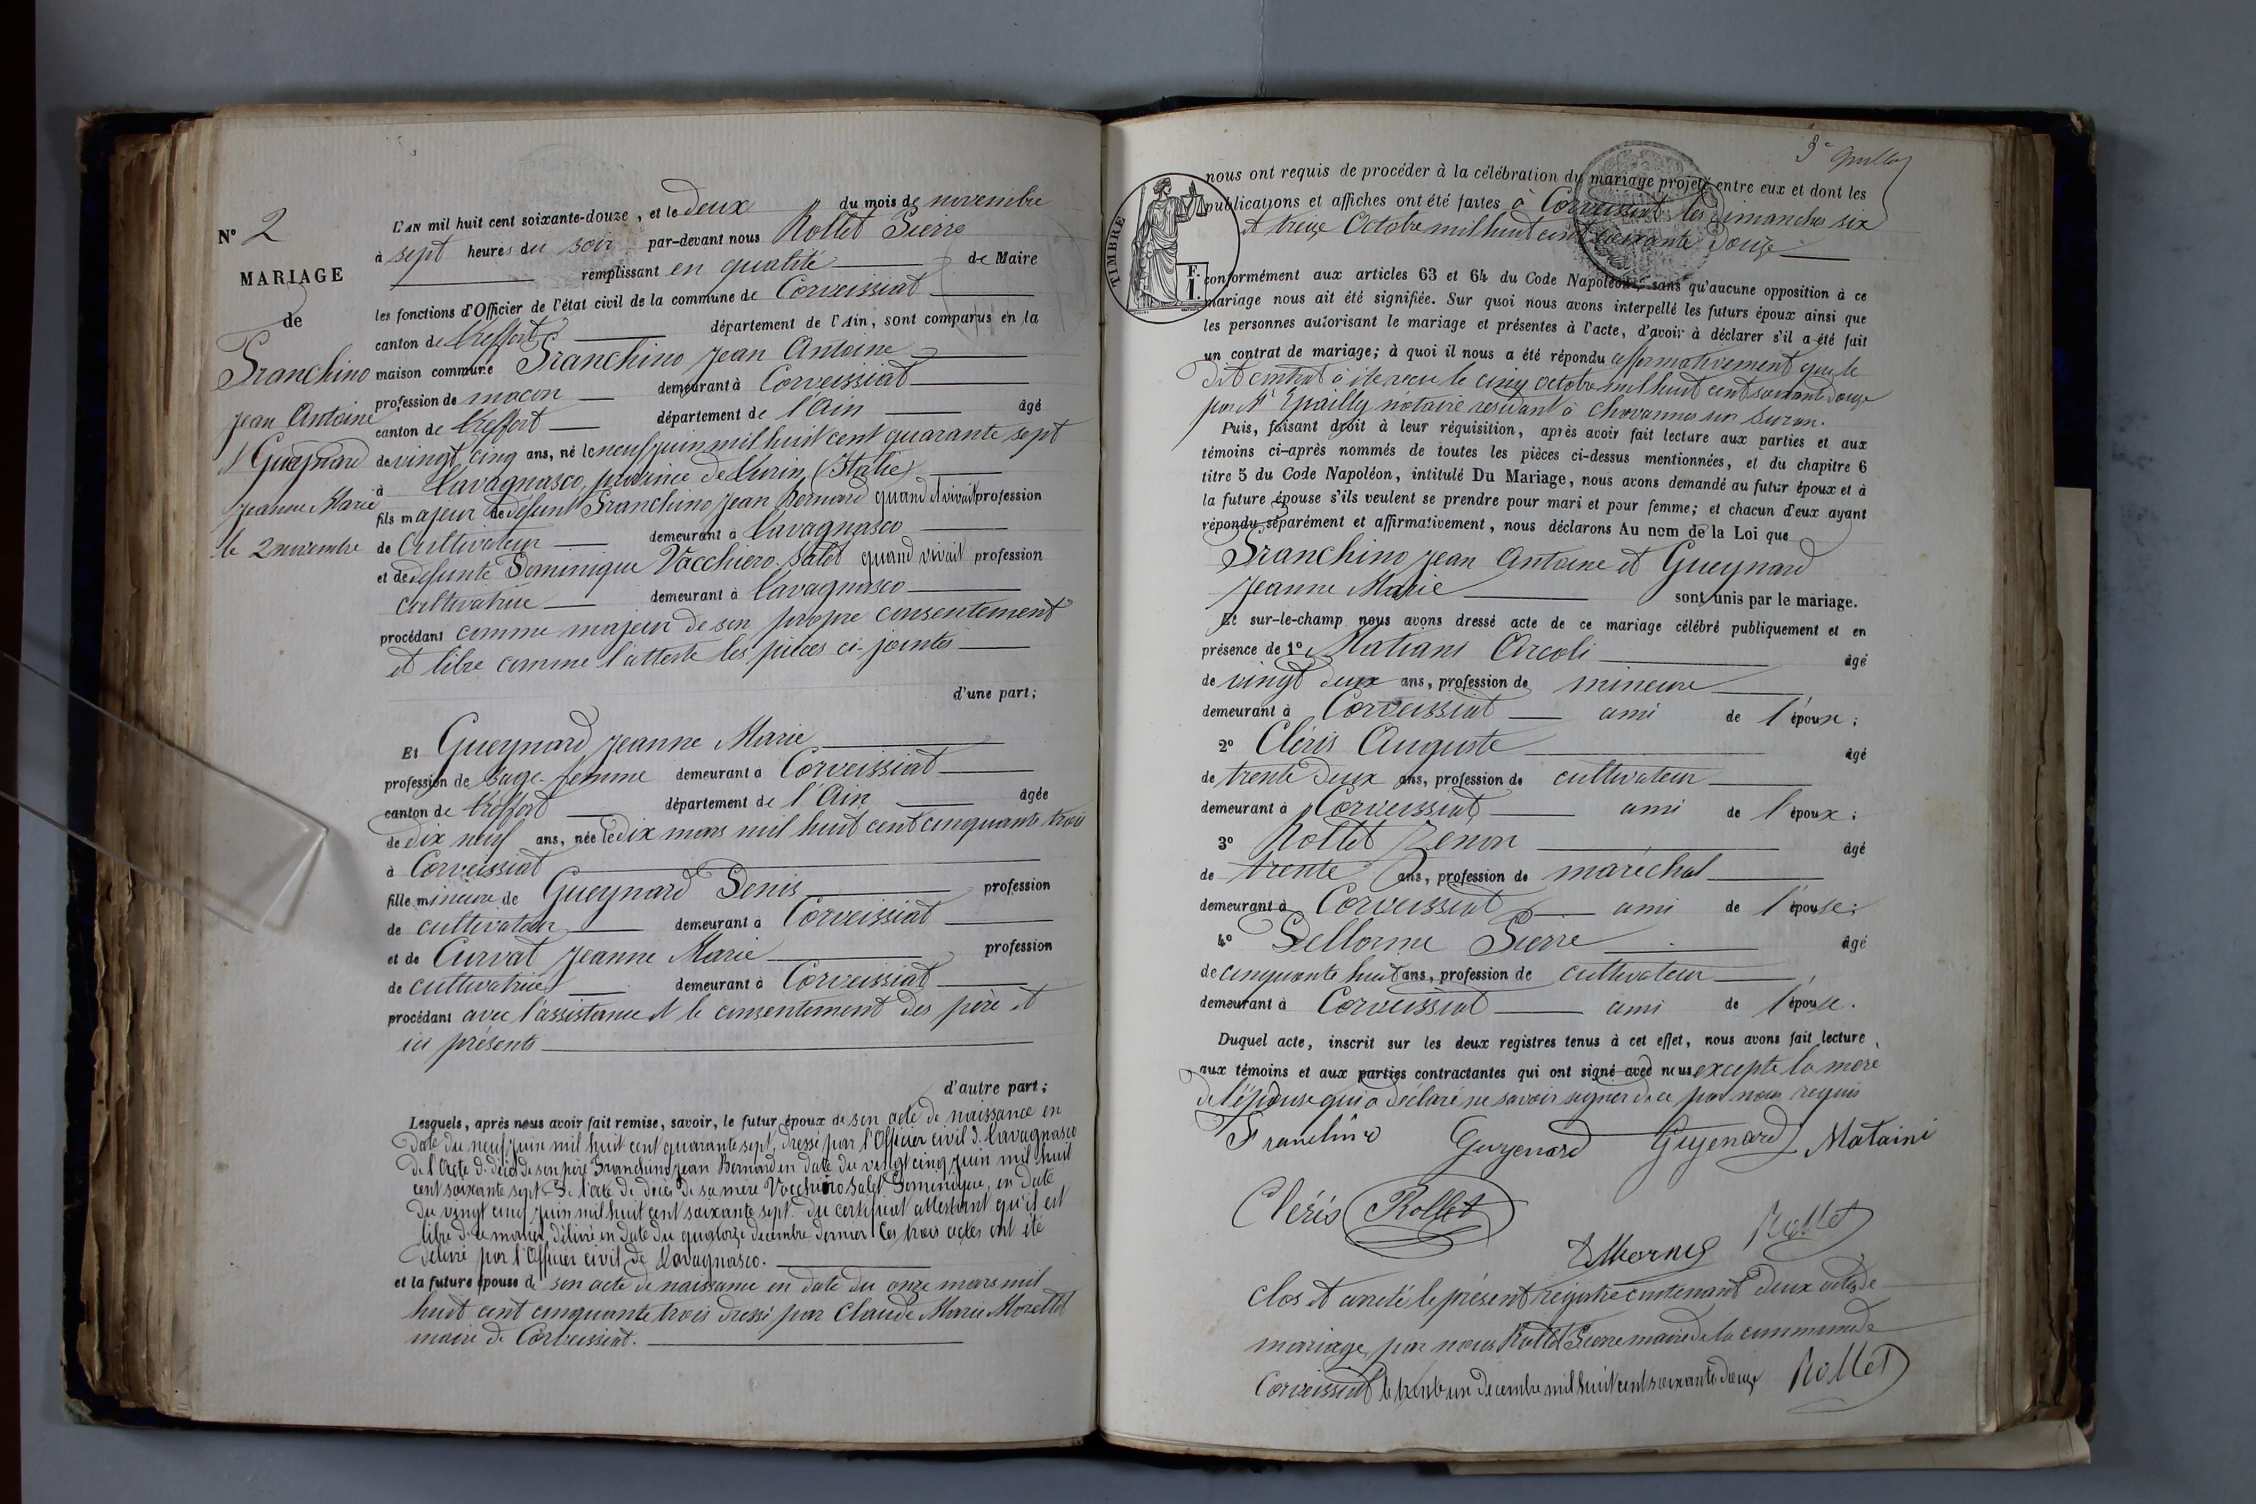 N° 2
MARIAGE
de
Franchino
Jean Antoine
et Gueynard
Jeanne Marie
le 2 novembre
L'AN mil huit cent soixante-douze, et le deux du mois de novembre
à sept heures du soir par-devant nous Rollet Pierre
remplissant en qualité de Maire
les fonctions d'Officier de l'état civil de la commune de Corveissiat
canton de Treffort département de l'Ain, sont comparus en la
maison commune Franchino Jean Antoine
profession de maçon demeurant à Corveissiat
canton de Treffort département de l'Ain âgé
de vingt cinq ans, né le neuf juin mil huit cent quarante sept
à Lavagnasco, province de Turin (Italie)
fils majeur de defunt Franchino Jean Bernard quand il vivait profession
de Cultivateur demeurant à Lavagnasco
et de defunte Dominique Vacchiero Salet quand vivait profession
cultivatrice demeurant à Lavagnasco
procédant comme majeur de son propre consentement
et libre comme l'atteste les pièces ci-jointes
d'une part;
Et Gueynard Jeanne Marie
profession de sage-femme demeurant à Corveissiat
canton de Treffort département de l'Ain âgée
de dix neuf ans, née le dix mars mil huit cent cinquante trois
à Corveissiat
fille mineure de Gueynard Denis profession
de cultivateur demeurant à Corveissiat
et de Curvat Jeanne Marie profession
de cultivatrice demeurant à Corveissiat
procédant avec l'assistance et le consentement des père et
ici présents
d'autre part;
Lesquels, après nous avoir fait remise, savoir, le futur époux de son acte de naissance en
date du neuf juin mil huit cent quarante sept, dressé par l'Officier civil de Lavagnasco
de l'Acte de décès de son père Franchino Jean Bernard en date du vingt cinq juin mil huit
cent soixante sept de l'acte de décès de sa mère Vacchiero Salet Dominique, en date
du vingt cinq juin mil huit cent soixante sept. du certificat attestant qu'il est
libre de se marier, délivré en date du quatorze decembre dernier les trois actes ont été
délivré par l'Officier civil de Lavagnasco.
et la future épouse de son acte de naissance en date du onze mars mil
huit cent cinquante trois dressé par Claude Marie Morellet
maire de Corveissiat.
TIMBRE
F.
I.
nous ont requis de procéder à la célébration du mariage projeté entre eux et dont les
publications et affiches ont été faites à Corveissiat les dimanches six
et treize Octobre mil huit cent soixante douze
conformément aux articles 63 et 64 du Code Napoléon, sans qu'aucune opposition à ce
mariage nous ait été signifiée. Sur quoi nous avons interpellé les futurs époux ainsi que
les personnes autorisant le mariage et présentes à l'acte, d'avoir à déclarer s'il a été fait
un contrat de mariage; à quoi il nous a été répondu affirmativement que le
dit contrat à été recu le cinq octobre mil huit cent soixante douze
par Me Epailly notaire residant à Chavannes sur Suran.
Puis, faisant droit à leur réquisition, après avoir fait lecture aux parties et aux
témoins ci-après nommés de toutes les pièces ci-dessus mentionnées, et du chapitre 6
titre 5 du Code Napoléon, intitulé Du Mariage, nous avons demandé au futur époux et à
la future épouse s'ils veulent se prendre pour mari et pour femme; et chacun d'eux ayant
répondu séparément et affirmativement, nous déclarons Au nom de la Loi que
Franchino Jean Antoine et Gueynard
Jeanne Marie sont unis par le mariage.
Et sur-le-champ nous avons dressé acte de ce mariage célébré publiquement et en
présence de 1° Matiani Arcoli âgé
de vingt deux ans, profession de mineure
demeurant à Corveissiat ami de l'époux;
2° Cléris Auguste âgé
de trente deux ans, profession de cultivateur
demeurant à Corveissiat ami de l'époux;
3° Rollet Zenon âgé
de trente ans, profession de maréchal
demeurant à Corveissiat ami de l'épouse;
4° Dellorme Pierre âgé
de cinquante huit ans, profession de cultivateur
demeurant à Corveissiat ami de l'épouse.
Duquel acte, inscrit sur les deux registres tenus à cet effet, nous avons fait lecture
aux témoins et aux parties contractantes qui ont signé avec nous excepté la mère
de l'épouse qui a déclaré ne savoir signer de ce par nous requis
Franchino Guyenard Guyenard Mataini
Cléris Rollet
Rollet
Clos et arreté le présent registre contenant deux actes de
mariage, par nous Rollet Pierre maire de la commune de
Corveissiat le trente un decembre mil huit cent soixante douze Rollet